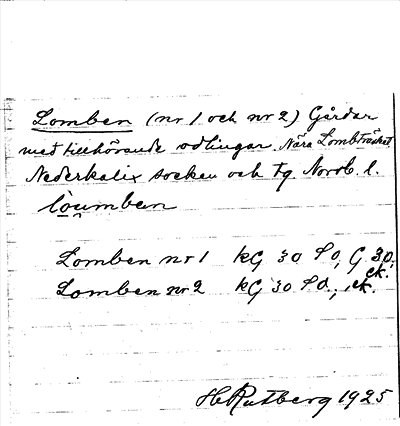 Lomben (nr 1 och nr 2) Gårdar
med tillhörande odlingar. Nära Lombträsket.
Nederkalix socken och tg. Norrb. l.
lòumben
Lomben nr 1 kG 30 SO, G 30,
ek.
Lomben nr 2 kG 30 SO, ek.
H Rutberg 1925